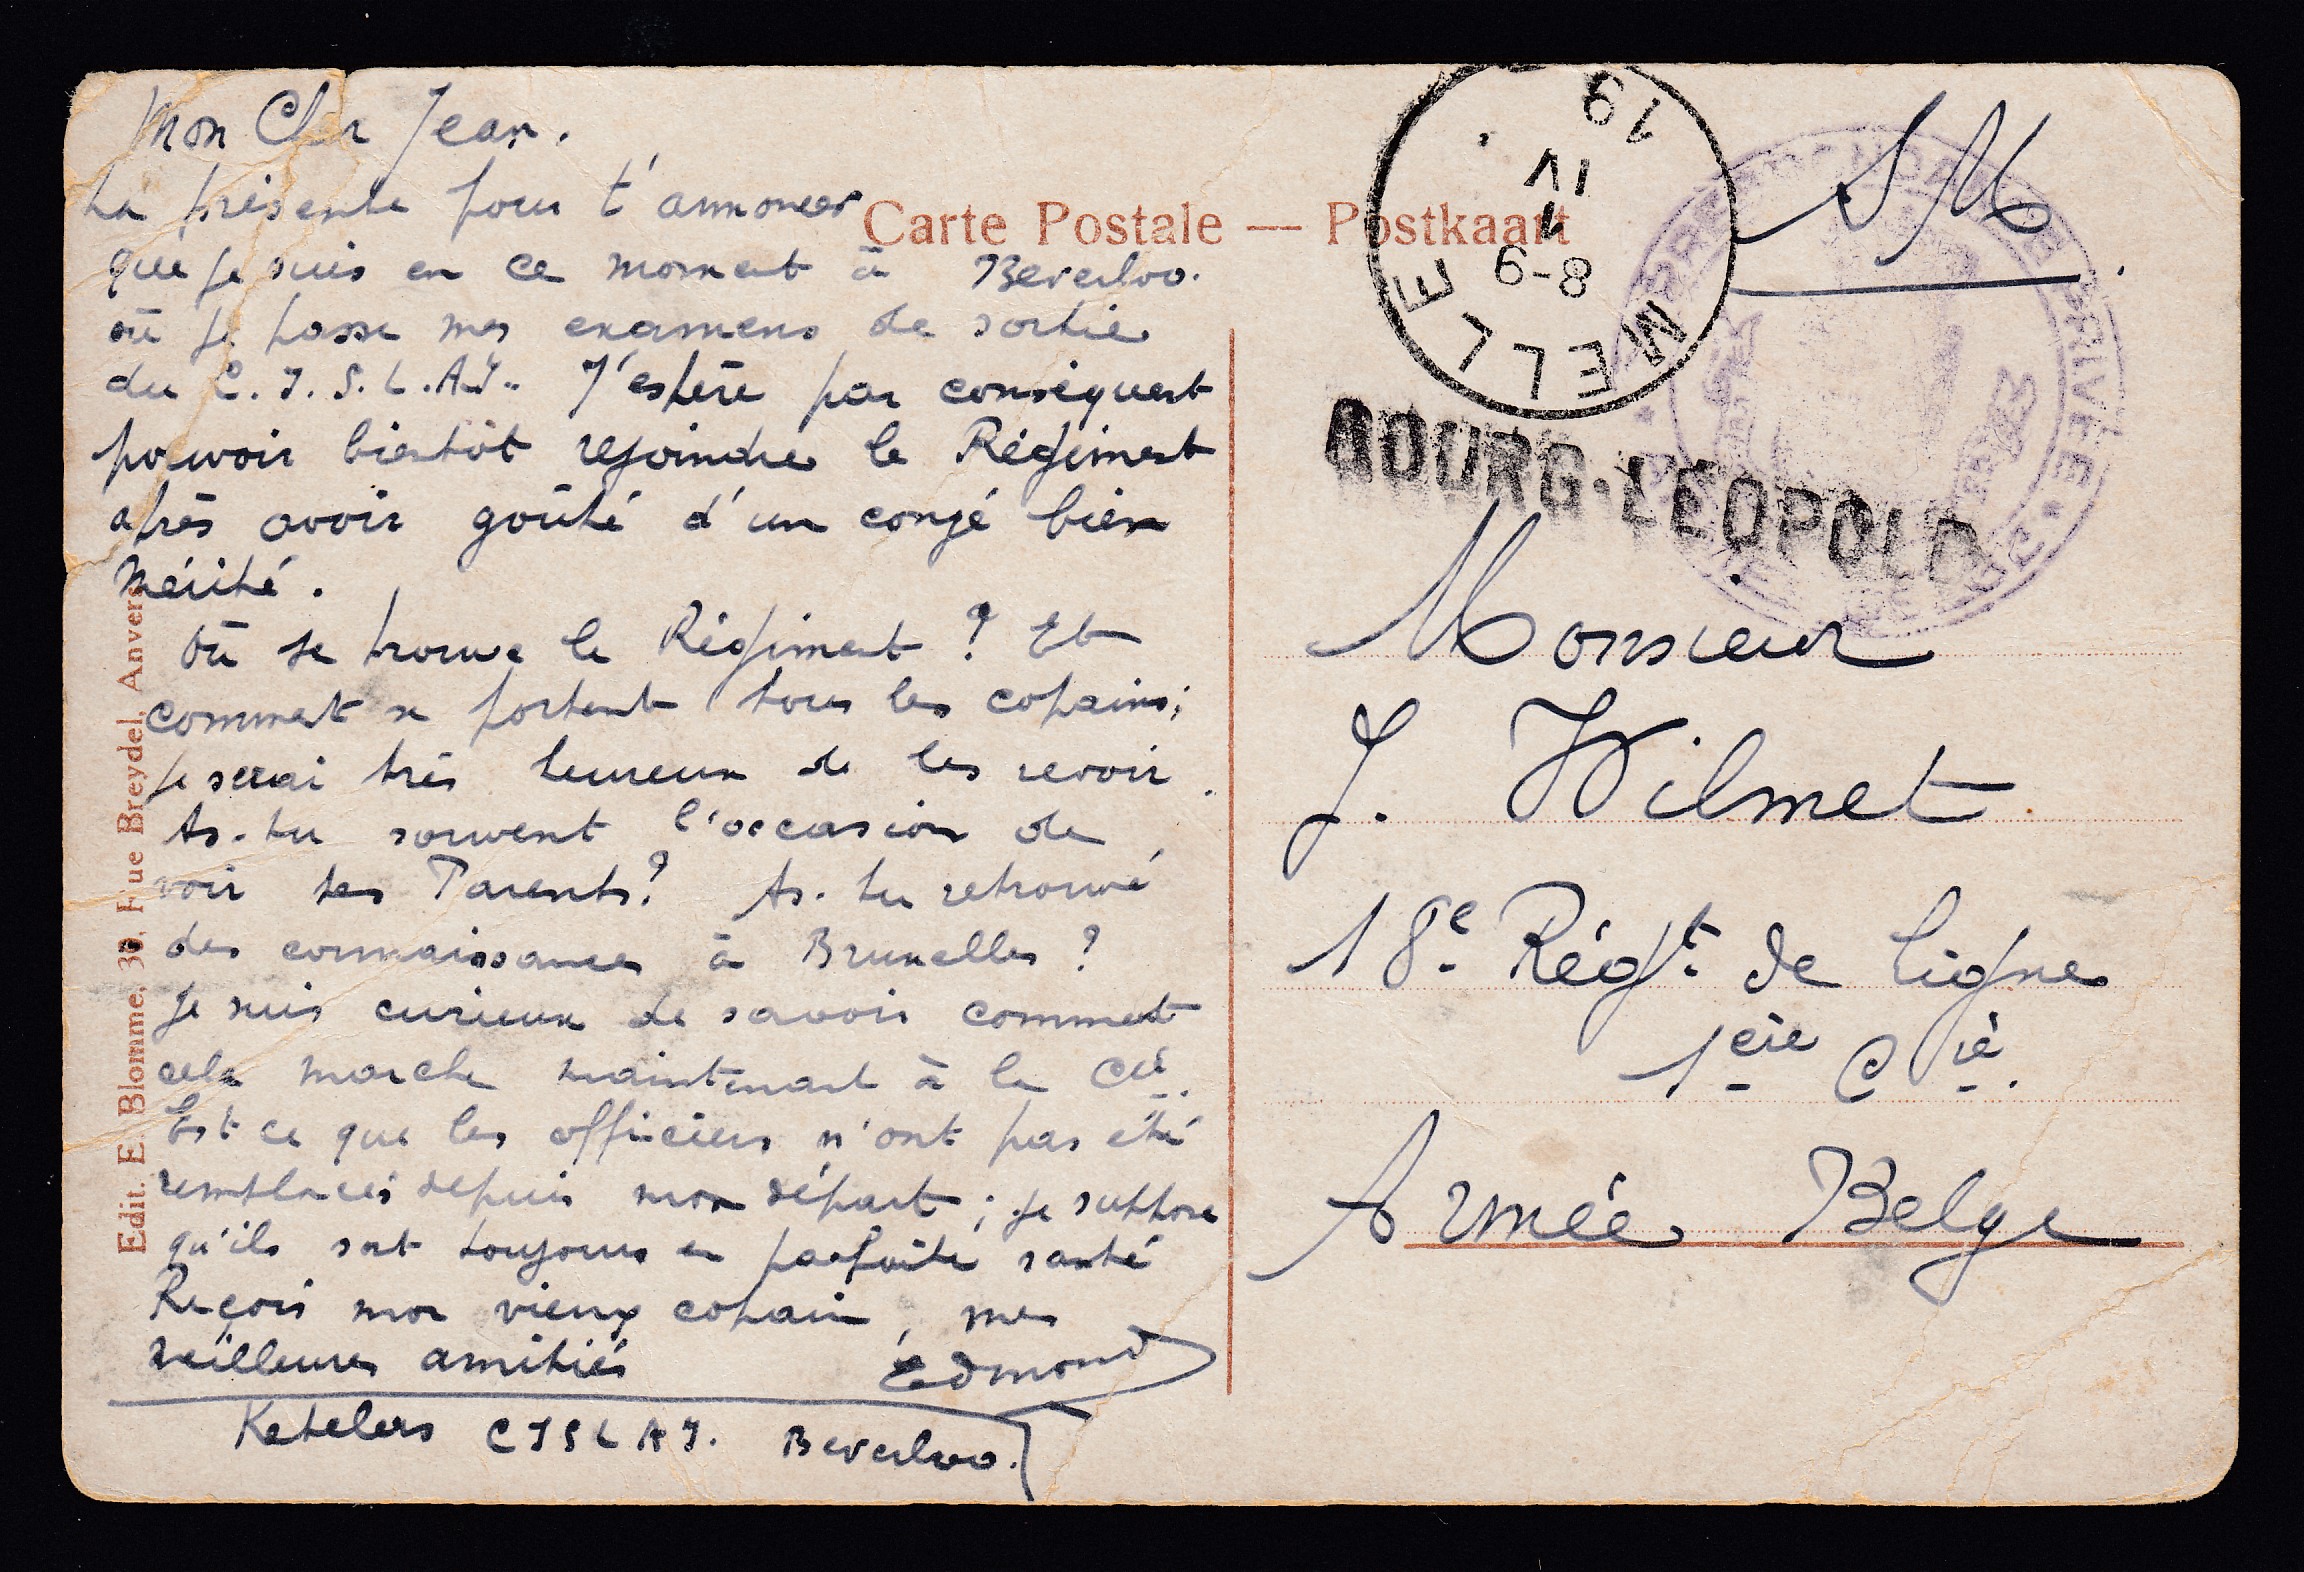 Mon Cher Jean.
La présente pour t'annoncer
que je suis en ce moment à Beverloo.
où je passe mes examens de sortie
du C.I.S.L.A.I.. J'espère par conséquent
pouvoir bientôt rejoindre le Régiment
après avoir goûté d'un congé bien
mérité.
Où se trouve le Régiment ? Et
comment se portent tous les copains;
je serai très heureux de les revoir.
As-tu souvent l'occasion de
voir tes Parents ? As-tu retrouvé
des connaissances à Bruxelles ?
Je suis curieux de savoir comment
cela marche maintenant à la Cie.
Est ce que les officiers n'ont pas été
remplacés depuis mon départ ; je suppose
qu'ils sont toujours en parfaite santé
Reçois mon vieux copain, mes
meilleures amitiés Edmond
Ketelers CISLAI. Beverloo.
Edit. E. Blomme, 30, Rue Breydel, Anvers
Carte Postale — Postkaart
SM
MELLE
8-9
1
IV
19
CORRESPONDANCE PRIVÉE
BOURG-LEOPOLD
Monsieur
J. Wilmet
18e Régt de Ligne
1ère Cie.
Armée Belge